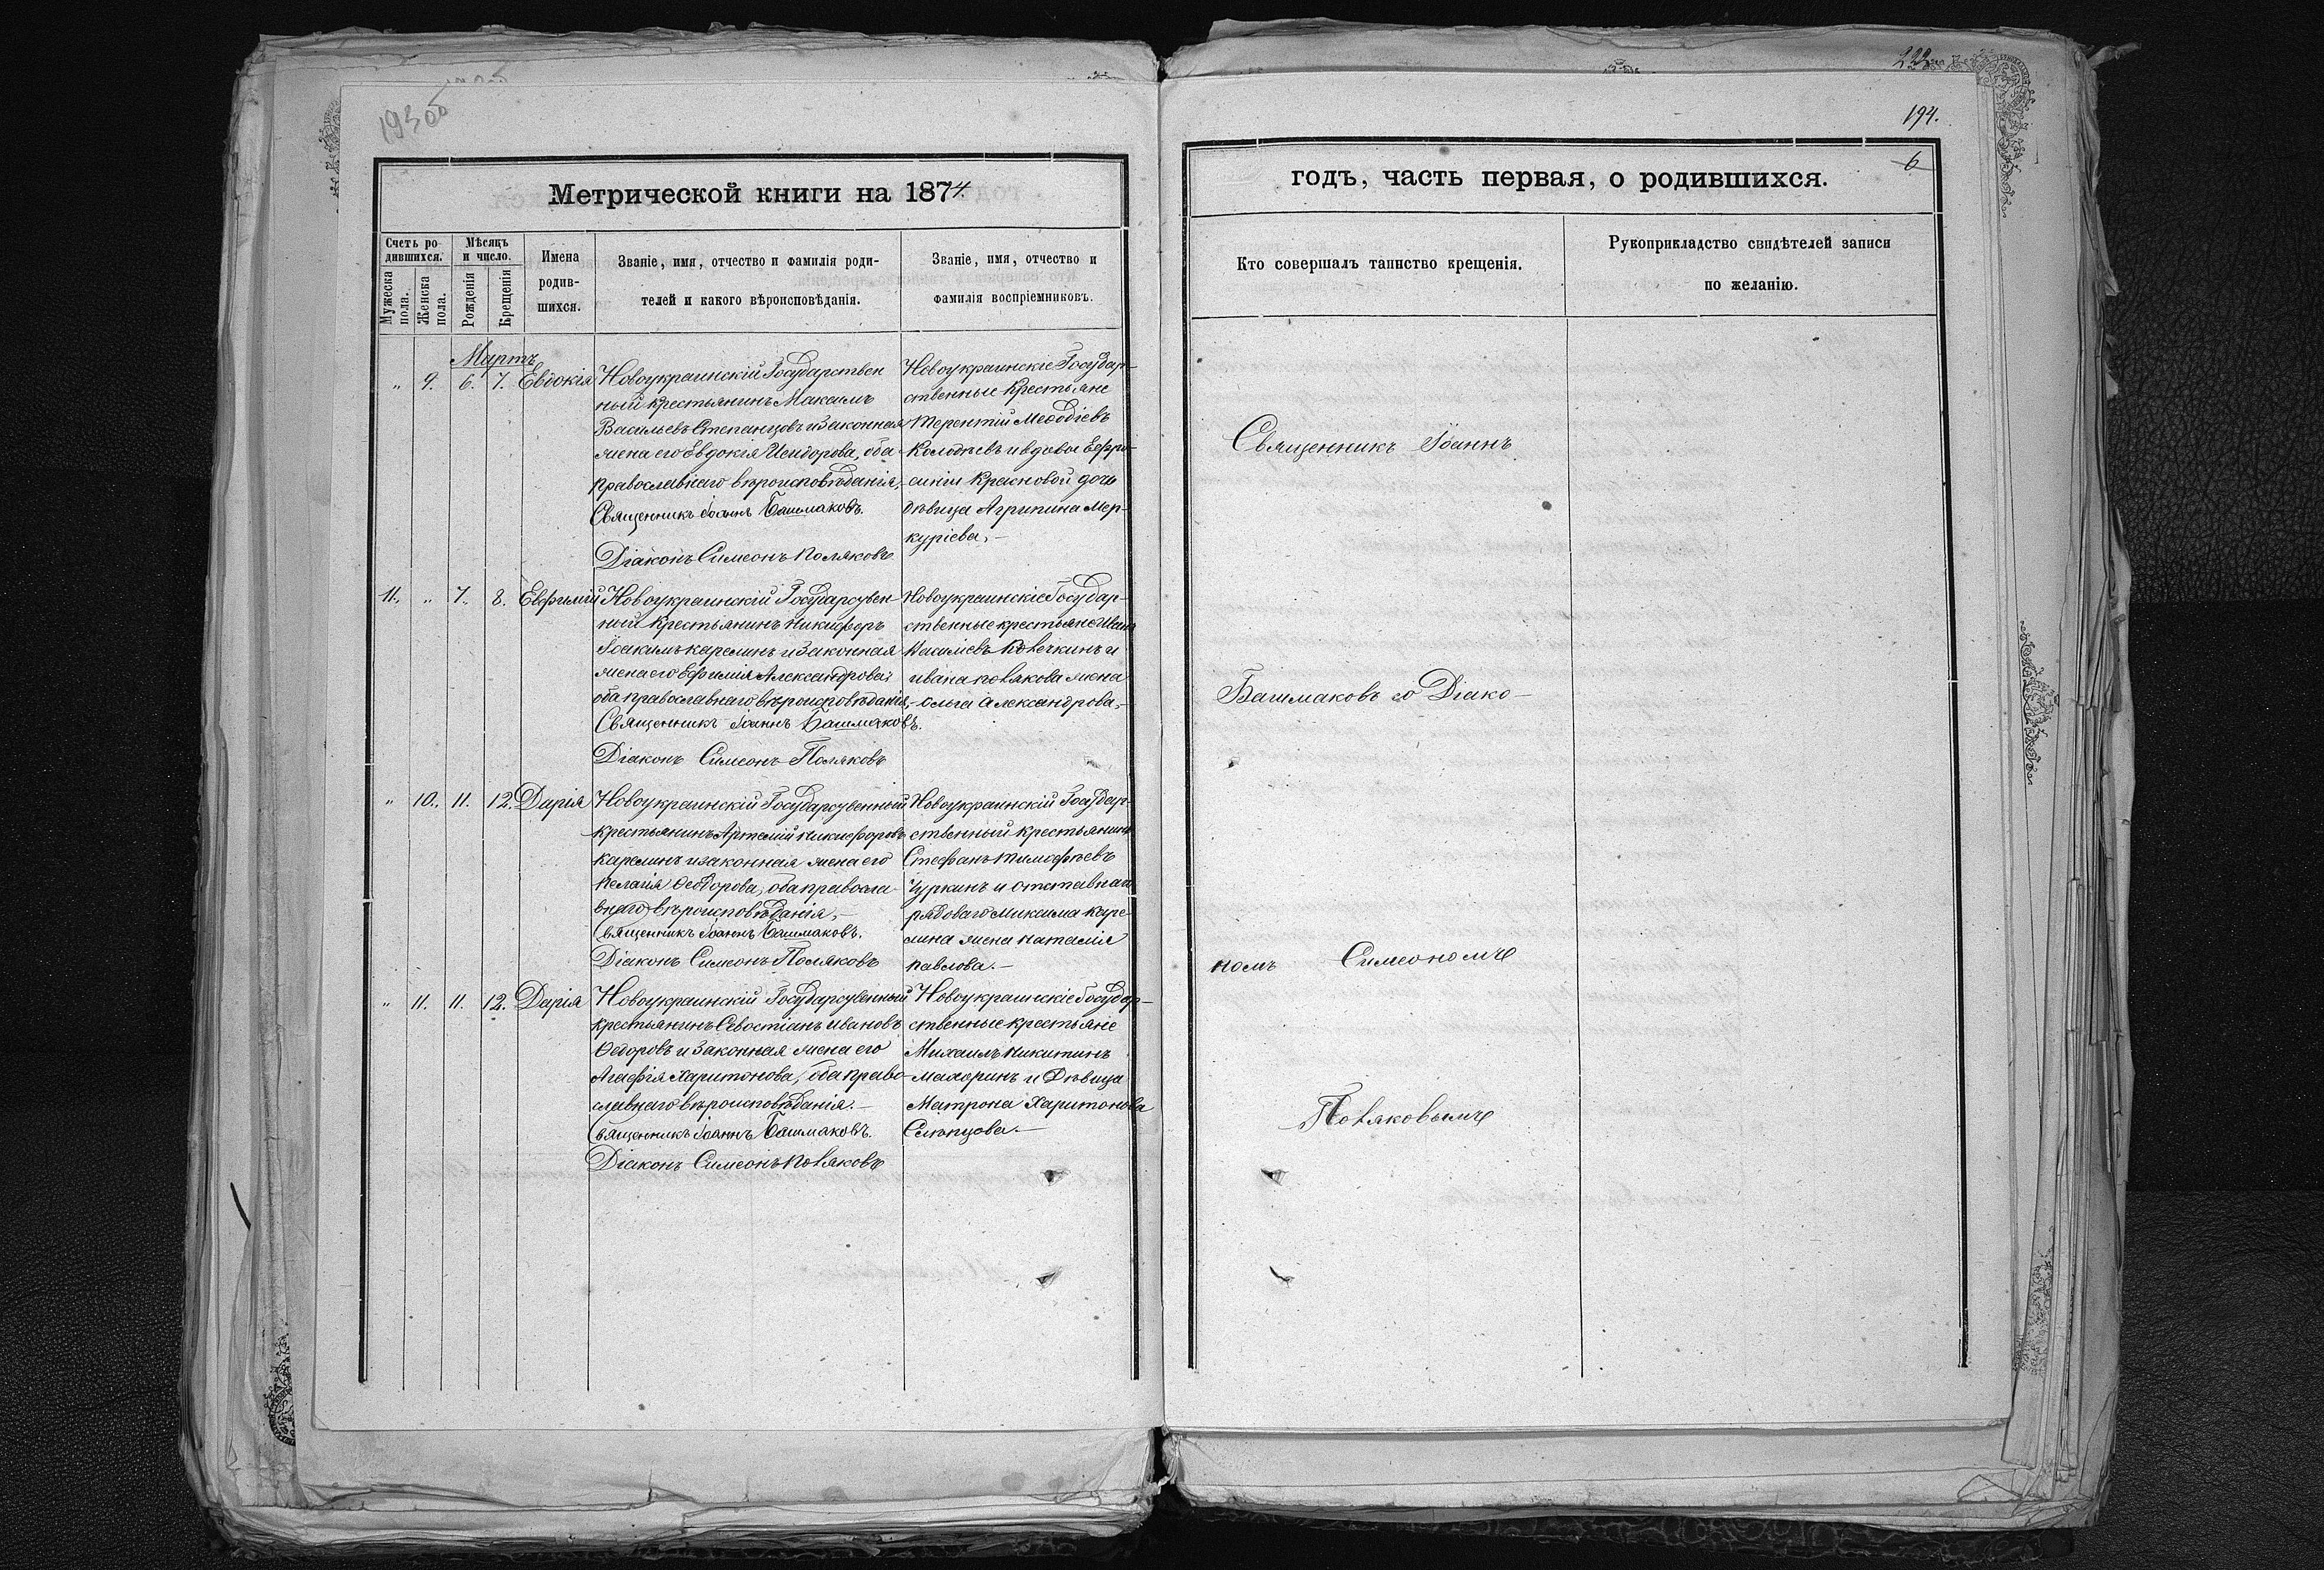 193 об
222
194.
6
Метрической книги на 1874
годъ, часть первая, о родившихся.
Счетъ ро-
дившихся.
Мужеска
пола.
Женска
пола.
Мѣсяцъ
и число.
Рожденія
Крещенія
Имена
родив-
шихся.
Званіе, имя, отчество и фамилія роди-
телей и какого вѣроисповѣданія.
Званіе, имя, отчество и
фамилія воспріемниковъ.
Кто совершалъ таинство крещенія.
Рукоприкладство свидѣтелей записи
по желанію.
Мартъ
„ 9. 6. 7. Евдокія
Новоукраинскій Государствен
ный крестьянинъ Максимъ
Васильевъ Степанцовъ и законная
жена его Евдокія Исидорова, оба
православнаго вѣроисповѣданія,
Священникъ Іоаннъ Башмаковъ.
Діаконъ Симеонъ Поляковъ
Новоукраинскіе Государ-
ственные крестьяне
Терентій Меѳодіевъ
Колодѣевъ и вдовы Ефро-
синіи Красновой дочь
дѣвица Агрипина Мер-
куріева,-
11. „ 7. 8. Евфимій
Новоукраинскій Государствен-
ный крестьянинъ Никифоръ
Іоакимъ Карелинъ и законная
жена его Ефимія Александровой
оба православнаго вѣроисповѣданія,-
Священникъ Іоаннъ Башмаковъ.
Діаконъ Симеонъ Поляковъ
Новоукраинскіе Государ-
ственные крестьяне Иванъ
Касиліевъ и
ивана полякова жена
ольга александрова,-
„ 10. 11. 12. Дарія
Новоукраинскій Государственный
крестьянинъ Артемій Никифоровъ
карелинъ и законная жена его
Пелагія Ѳеодорова, оба правосла
внаго вѣроисповѣданія,-
Священникъ Іоаннъ Башмаковъ.
Діаконъ Симеонъ Поляковъ
Новоукраинскій Государ-
ственный крестьянинъ
Стефанъ Тимофѣевъ
Чуркинъ и отставнаго
рядоваго Максима Каре-
лина жена Наталія
павлова.-
„ 11. 11. 12. Дарія
Новоукраинскій Государственный
крестьянинъ Севостіанъ Ивановъ
Ѳедоровъ и законная жена его
Агафія Харитонова, оба право-
славнаго вѣроисповѣданія.-
Священникъ Іоаннъ Башмаковъ.
Діаконъ Симеонъ Поляковъ
Новоукраинскіе Государ-
ственные крестьяне
Михаилъ Никитинъ
Махоринъ и Дѣвица
Матрона Харитонова
Слѣпцова.-
Священникъ Іоаннъ
Башмаковъ со Діако-
номъ Симеономъ
Поляковымъ